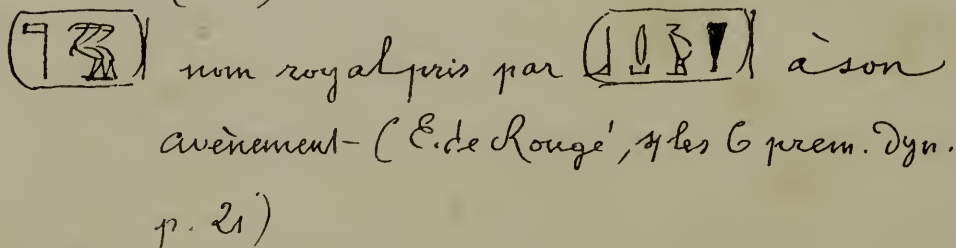 nom royal pris par à son
avènement - (E. de Rougé, s/ les 6 prem. Dyn.
p. 21)